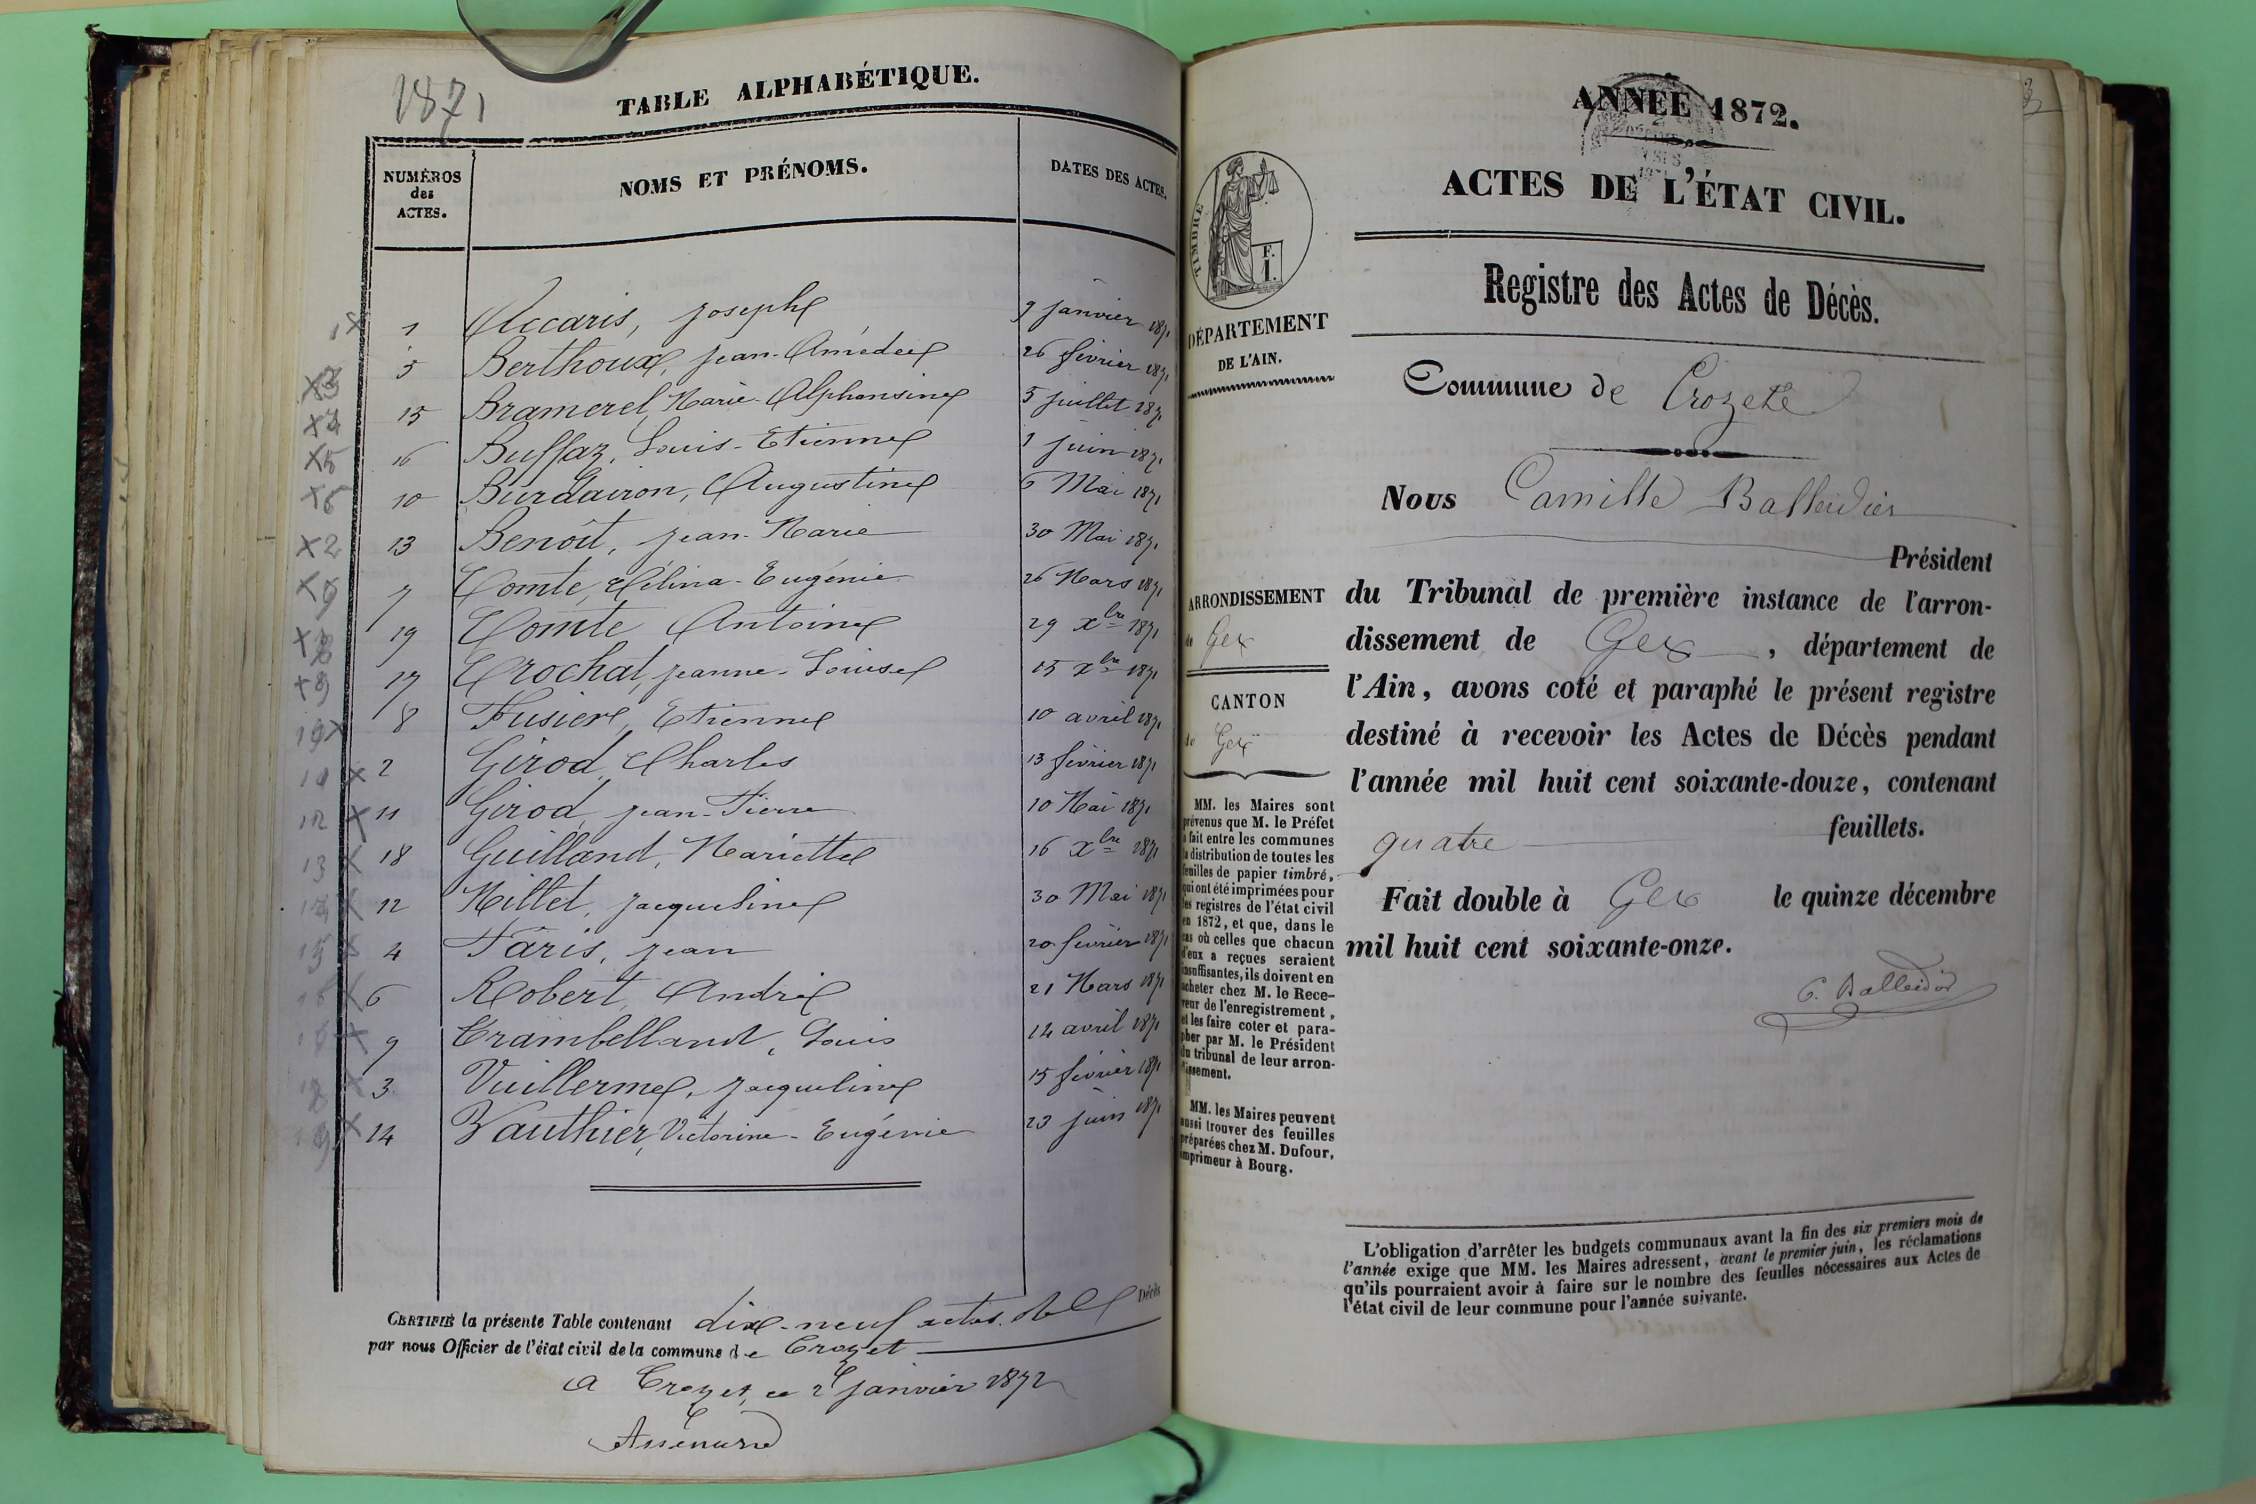 1871
TABLE ALPHABÉTIQUE.
NUMÉROS
des
ACTES.
NOMS ET PRÉNOMS.
DATES DES ACTES.
1 Accaris, Joseph 9 janvier 1871
5 Berthoux, Jean-Amédée 26 février 1871
15 Bramerel, Marie-Alphonsine 5 juillet 1871
16 Buffaz, Louis-Etienne 1 juin 1871
10 Burdairon, Augustine 6 Mai 1871
13 Benoît, Jean-Marie 30 Mai 1871
7 Comte, Célina-Eugénie 26 Mars 1871
19 Comte Antoine 29 xbre 1871
17 Crochat, Jeanne-Louise 15 xbre 1871
8 Fusier, Etienne 10 avril 1871
2 Girod, Charles 13 février 1871
11 Girod, Jean-Pierre 10 Mai 1871
18 Guilland, Mariette 16 xbre 1871
12 Millet, Jacqueline 30 Mai 1871
4 Pâris, Jean 20 février 1871
6 Robert, André 21 Mars 1871
9 Trambelland, Louis 12 avril 1871
3 Vuillerme, Jacqueline 15 février 1871
14 Vauthier, Victorine-Eugénie 23 juin 1871
CERTIFIÉ la présente Table contenant dix-neuf actes de Décès
par nous Officier de l'état civil de la commune de Crozet
A Crozet, ce 2 janvier 1872
ANNÉE 1872.
ACTES DE L'ÉTAT CIVIL.
Registre des Actes de Décès.
TIMBRE
F.
I.
DÉPARTEMENT
DE L'AIN.
Commune de Crozet
Nous Camille Balleidier
Président
du Tribunal de première instance de l'arron-
dissement de Gex, département de
l'Ain, avons coté et paraphé le présent registre
destiné à recevoir les Actes de Décès pendant
l'année mil huit cent soixante-douze, contenant
quatre feuillets.
Fait double à Gex le quinze décembre
mil huit cent soixante-onze.
C. Balleidier
ARRONDISSEMENT
de Gex
CANTON
de Gex
MM. les Maires sont
prévenus que M. le Préfet
a fait entre les communes
la distribution de toutes les
feuilles de papier timbré,
qui ont été imprimées pour
les registres de l'état civil
en 1872, et que, dans le
cas où celles que chacun
d'eux a reçues seraient
insuffisantes, ils doivent en
acheter chez M. le Rece-
veur de l'enregistrement,
et les faire coter et para-
pher par M. le Président
du tribunal de leur arron-
dissement.
MM. les Maires peuvent
aussi trouver des feuilles
préparées chez M. Dufour,
imprimeur à Bourg.
L'obligation d'arrêter les budgets communaux avant la fin des six premiers mois de
l'année exige que MM. les Maires adressent, avant le premier juin, les réclamations
qu'ils pourraient avoir à faire sur le nombre des feuilles nécessaires aux Actes de
l'état civil de leur commune pour l'année suivante.